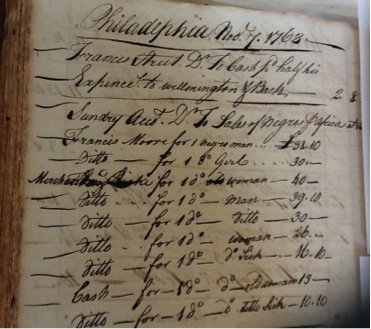 Philadelphia Nov. 7. 1763
Francis Acct. Dr. To Cash pd. half his
Expences to wellmington & Back 2. 8
Sundry Acct. Dr. To Sales of Negros Africa
Francis Moore for 1 negro man £38.10
Ditto for 1 do Girl 30
Merchant for 1 do woman 40
Ditto for 1 do man 39.10
Ditto for 1 do Ditto 30
Ditto for 1 do woman 26
Ditto for 1 do do Sick 16.10
Cash for 1 do do woman 13
Ditto for 1 do do ditto Sick 10.10